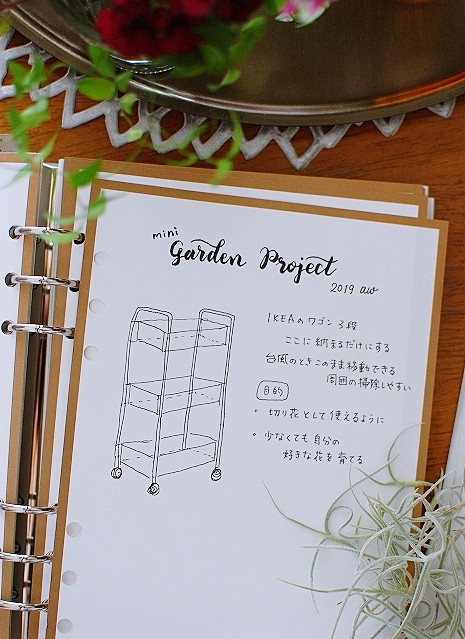 mini
Garden Project
2019 aw
IKEAのワゴン 3段
ここに納まるだけにする
台風のときこのまま移動できる
周囲の掃除しやすい
目的
• 切り花として使えるように
• 少なくても自分の
好きな花を育てる